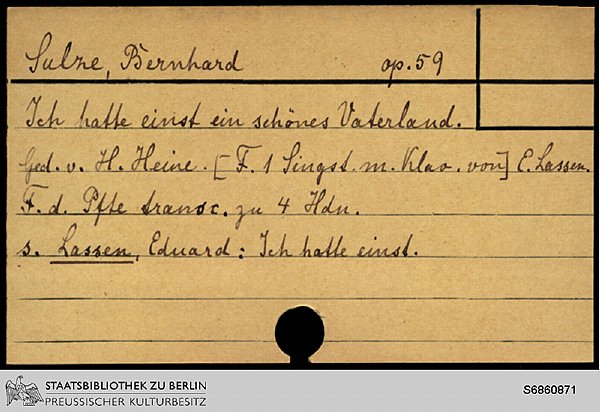 Sulze, Bernhard op. 59
Ich hatte einst ein schönes Vaterland.
Ged. v. H. Heine. [F. 1 Singst. m. Klav. von] E. Lassen.
F. d. Pfte transc. zu 4 Hdn.
s. Lassen, Eduard: Ich hatte einst.
STAATSBIBLIOTHEK ZU BERLIN
PREUSSISCHER KULTURBESITZ
S6860871